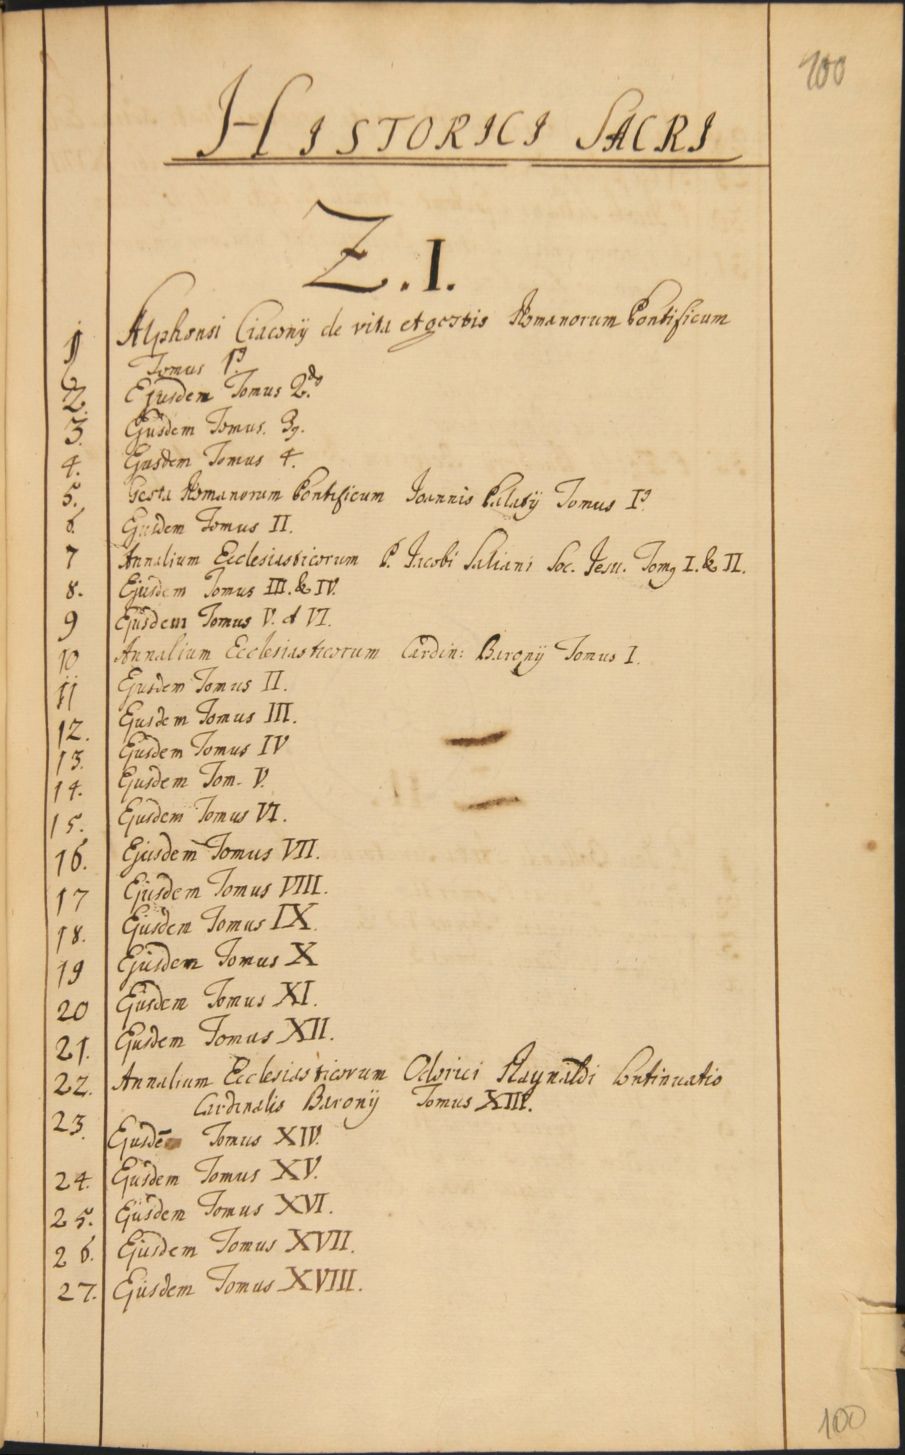 100
HISTORICI SACRI
Z.I.
1 Alphonsi Ciaconij de vita et gestis Romanorum Pontificum
Tomus 1s
2. Ejusdem Tomus 2.do
3. Ejusdem Tomus. 3s.
4. Ejusdem Tomus 4.
5. Gesta Romanorum Pontificum Joannis Palatij Tomus Is
6. Ejusdem Tomus II.
7 Annalium Ecclesiasticorum P. Jacobi Saliani Soc. Jesu. Tom9 I. & II.
8. Ejusdem Tomus III. & IV.
9 Ejusdem Tomus V. et VI.
10 Annalium Ecclesiasticorum Cardin: Baronij Tomus I.
11 Ejusdem Tomus II.
12. Ejusdem Tomus III.
13. Ejusdem Tomus IV
14. Ejusdem Tom. V.
15. Ejusdem Tomus VI.
16. Ejusdem Tomus VII.
17 Ejusdem Tomus VIII.
18. Ejusdem Tomus IX.
19 Ejusdem Tomus X
20 Ejusdem Tomus XI.
21. Ejusdem Tomus XII.
22. Annalium Ecclesiasticorum Odorici Raynaldi Continuatio
Cardinalis Baronij Tomus XIII.
23. Ejusdē Tomus XIV.
24. Ejusdem Tomus XV.
25. Ejusdem Tomus XVI.
26. Ejusdem Tomus XVII.
27. Ejusdem Tomus XVIII.
100